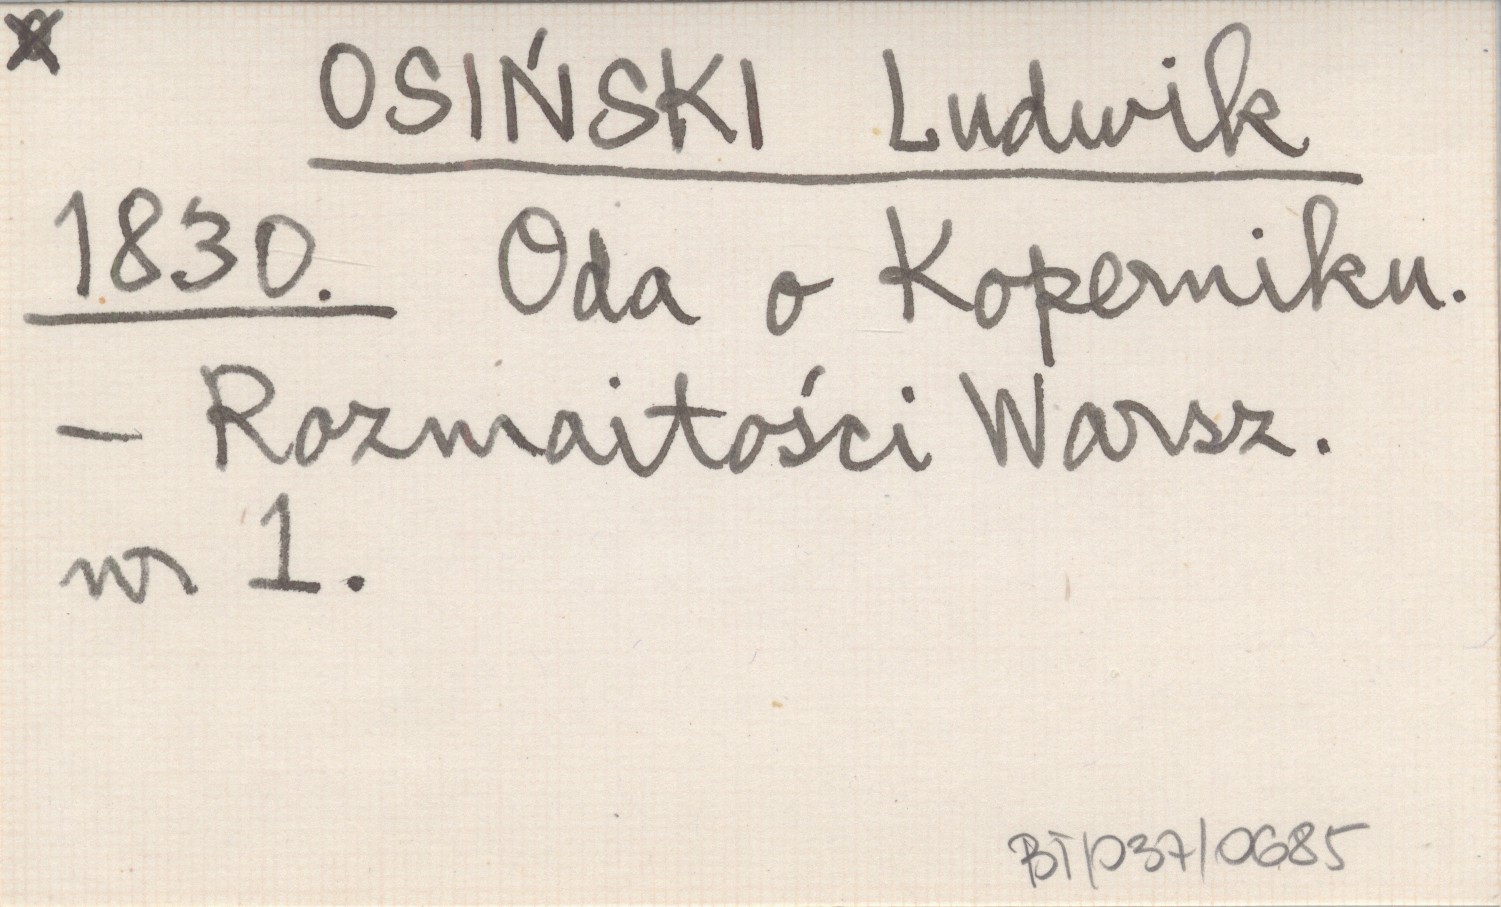 OSIŃSKI Ludwik
1830. Oda o Koperniku.
- Rozmaitości Warsz.
nr 1.
BT/037/0685